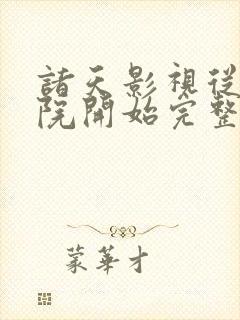 諸天影視從
院開始完整
蒙華才